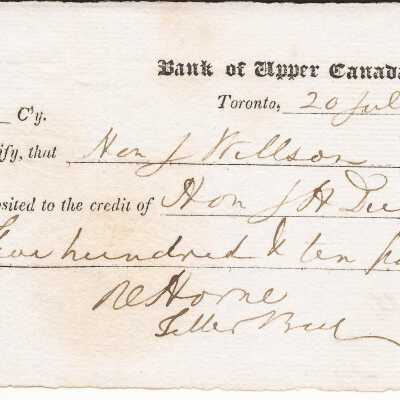 Bank of Upper Canada
Toronto, 20 Jul
C'y.
ify, that Hon J Willson
osited to the credit of Hon J H Du
hundred & ten po
R C Horne
Teller B